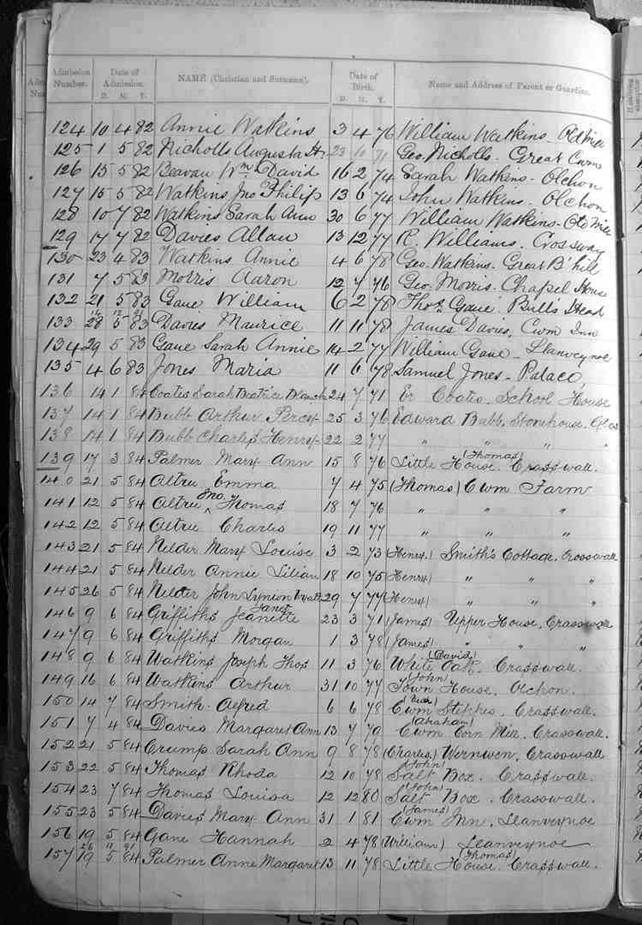 Admission Number. Date of Admission. NAME (Christian and Surname). Date of Birth. Name and Address of Parent or Guardian.
D. M. Y. D. M. Y.
124 10 4 82 Annie Watkins 3 4 76 William Watkins - Old Mill
125 1 5 82 Nicholls Augusta H. 23 10 71 Geo. Nicholls - Great Cwm
126 15 5 82 Beavan Wm David 16 2 74 Sarah Watkins - Olchon
127 15 5 82 Watkins Jno Philip 13 6 74 John Watkins - Olchon
128 10 7 82 Watkins Sarah Ann 30 6 77 William Watkins - Old Mill
129 17 7 82 Davies Allan 13 12 77 R. Williams. Crossway
130 23 4 83 Watkins Annie 4 6 78 Geo. Watkins. Great B'hill
131 7 5 83 Morris Aaron 12 7 76 Geo. Morris - Chapel House
132 21 5 83 Gane William 6 2 78 Thos. Gane Bull's Head
133 28 5 83 Davies Maurice 11 11 78 James Davies, Cwm Inn
134 29 5 83 Gane Sarah Annie 14 2 77 William Gane - Llanveynoe
135 4 6 83 Jones Maria 11 6 78 Samuel Jones - Palace,
136 14 1 84 Coates Sarah Beatrice Blanch 24 7 71 Er Coates, School House
137 14 1 84 Bubb Arthur Percy 25 3 76 Edward Bubb, Stonehouse. Glos
138 14 1 84 Bubb Charles Henry 22 2 77 " " "
139 17 3 84 Palmer Mary Ann 15 8 76 Little House (Thomas) Crasswall.
140 21 5 84 Altree Emma 7 4 75 (Thomas) Cwm Farm
141 12 5 84 Altree Jno. Thomas 18 7 76 " " "
142 12 5 84 Altree Charles 19 11 77 " " "
143 21 5 84 Nelder Mary Louise 3 2 73 (Henry) Smith's Cottage, Crasswall
144 21 5 84 Nelder Annie Lilian 18 10 75 (Henry) " " "
145 26 5 84 Nelder John 29 7 77 (Henry) " " "
146 9 6 84 Griffiths Jeanette (Janet) 23 3 71 (James) Upper House, Crasswall
147 9 6 84 Griffiths Morgan 1 3 78 (James) " " "
148 9 6 84 Watkins Joseph Thos 11 3 76 White Oak. (David) Crasswall.
149 16 6 84 Watkins Arthur 31 10 77 (John) Town House, Olchon.
150 14 7 84 Smith Alfred 6 6 78 Cwm Steppes, Crasswall.
151 7 4 84 Davies Margaret Ann 13 7 79 (Abraham) Cwm Corn Mill. Crasswall.
152 21 5 84 Crump Sarah Ann 9 8 78 (Charles) Wernwen, Crasswall
153 22 5 84 Thomas Rhoda 12 10 78 (John) Salt Box. Crasswall.
154 23 7 84 Thomas Louisa 12 12 80 (John) Salt Box. Crasswall.
155 23 5 84 Davies Mary Ann 31 1 81 (James) Cwm Inn, Llanveynoe
156 19 5 84 Gane Hannah 2 4 78 (William) Llanveynoe
157 19 5 84 Palmer Anne Margaret 13 11 78 Little House. (Thomas) Crasswall.